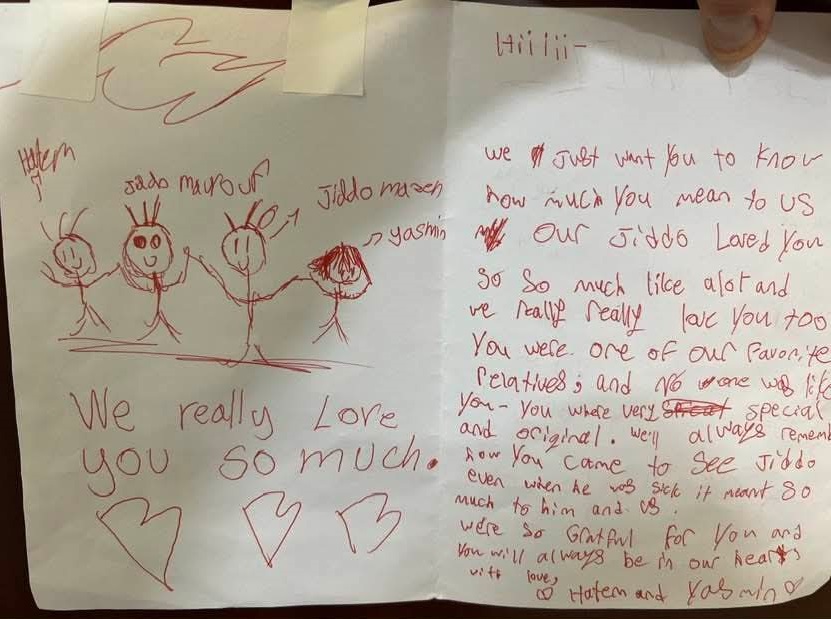 Hatem
Jiddo marouf
Jiddo mazen
yasmin
We really Love
you so much.
Hiiiii-
we Just want you to know
how much you mean to us
Our Jiddo Loved you
so so much like alot and
we really really love you too
You were one of our favorite
relatives; and No one was
you- you where very special
and original. we'll always
how you came to see Jiddo
even when he was sick it meant so
much to him and us.
we're so Gratful for you and
you will always be in our hearts
with love,
♡ Hatem and Yasmin ♡